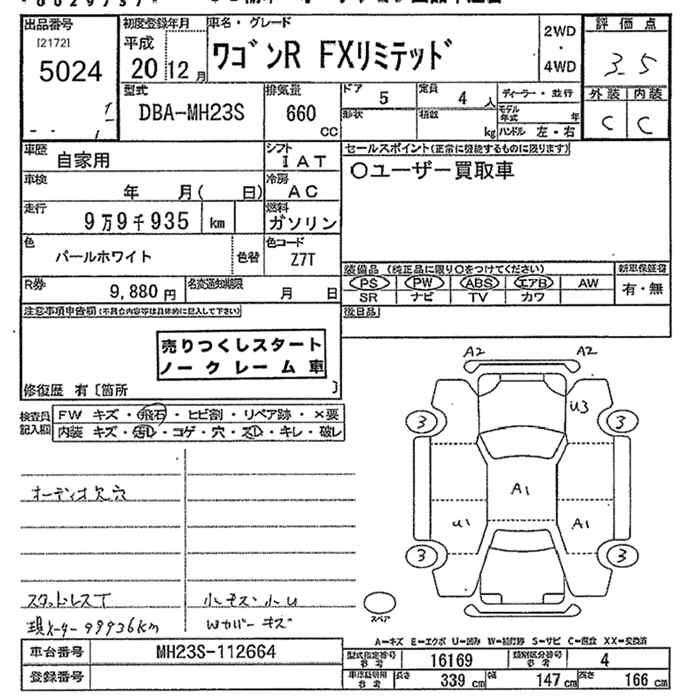 出品番号
[2172]
5024
初度登録年月
平成
20 12月
車名・グレード
ワゴンR FXリミテッド
2WD
・
4WD
評価点
3.5
外装 内装
C C
型式
DBA-MH23S
排気量
660
CC
ドア 5
定員 4 人
形状
積載 kg
ディーラー・並行
モデル年式 年
ハンドル 左・右
車歴 自家用
シフト IAT
車検 年 月( 日)
冷房 AC
走行 9万9千935 km
燃料 ガソリン
色 パールホワイト
色替
色コード Z7T
R券 9,880円
名変通知期限 月 日
セールスポイント(正常に機能するものに限ります)
〇ユーザー買取車
装備品 (純正品に限り〇をつけてください)
PS PW ABS エアB AW
SR ナビ TV カワ
新車保証書
有・無
後日品
注意事項申告欄(不具合内容等は具体的に記入して下さい)
売りつくしスタート
ノークレーム車
修復歴 有〔箇所 〕
検査員記入欄
FW キズ・飛石・ヒビ割・リペア跡・×要
内装 キズ・汚レ・コゲ・穴・スレ・キレ・破レ
オーディオ欠穴
スタッドレスT
現メーター99936km
小キズ・小U
Wカバーキズ
A2 A2
U3
3 3
A1
U1 A1
3 3
スペア
A=キズ E=エクボ U=凹み W=補修跡 S=サビ C=腐食 XX=交換済
車台番号 MH23S-112664
登録番号
型式指定番号 参考 16169
類別区分番号 参考 4
車庫証明用 参考 長さ 339 cm 幅 147 cm 高さ 166 cm